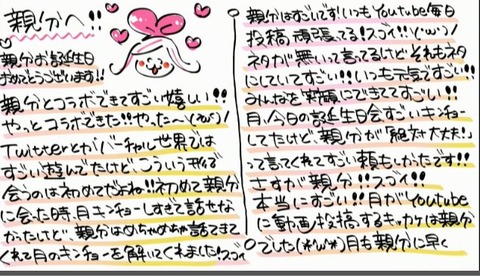 親分へ!!
親分お誕生日
おめでとうございます!!
親分とコラボできてすごい嬉しい!!
やっとコラボできた!!やった〜(*'ω'*)/
Twitterとかバーチャル世界では
すごい遊んでたけど、こういう形で
会うのは初めてだよね!!初めて親分
に会った時、月キンチョーしすぎて話せな
かったけど、親分はめちゃめちゃ話てきて
くれて月のキンチョーを解いてくれました!スゴイ
親分はすごいです!いつもYoutube毎日
投稿頑張ってる!スゴイ!!('ω')/
ネタが無いって言ってるけどそれもネタ
にしていてすごい!!いつも元気ですごい!!
みんなを笑顔にできててすごい!!
月、今日の誕生日会すごいキンチョー
してたけど親分が「絶対大丈夫!」
って言ってくれてすごい頼もしかったです!!
さすが親分!!スゴイ!!
本当にすごい!月がYoutube
に動画投稿するキッカケは親分
でした(*'ω'*)月も親分に早く